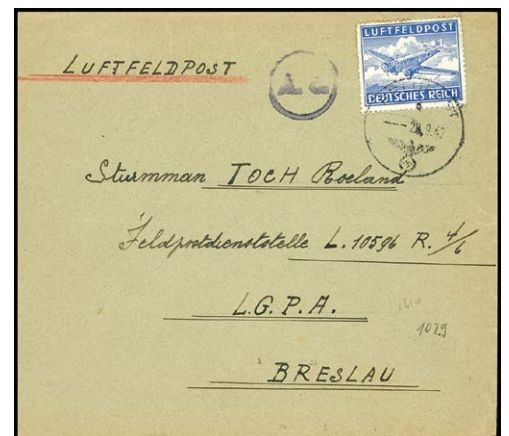 LUFTFELDPOST
LUFTFELDPOST
DEUTSCHES REICH
Sturmman TOCH Roeland
Feldpostdienststelle L. 10596 R. 4/6
L.G.P.A.
1029
BRESLAU